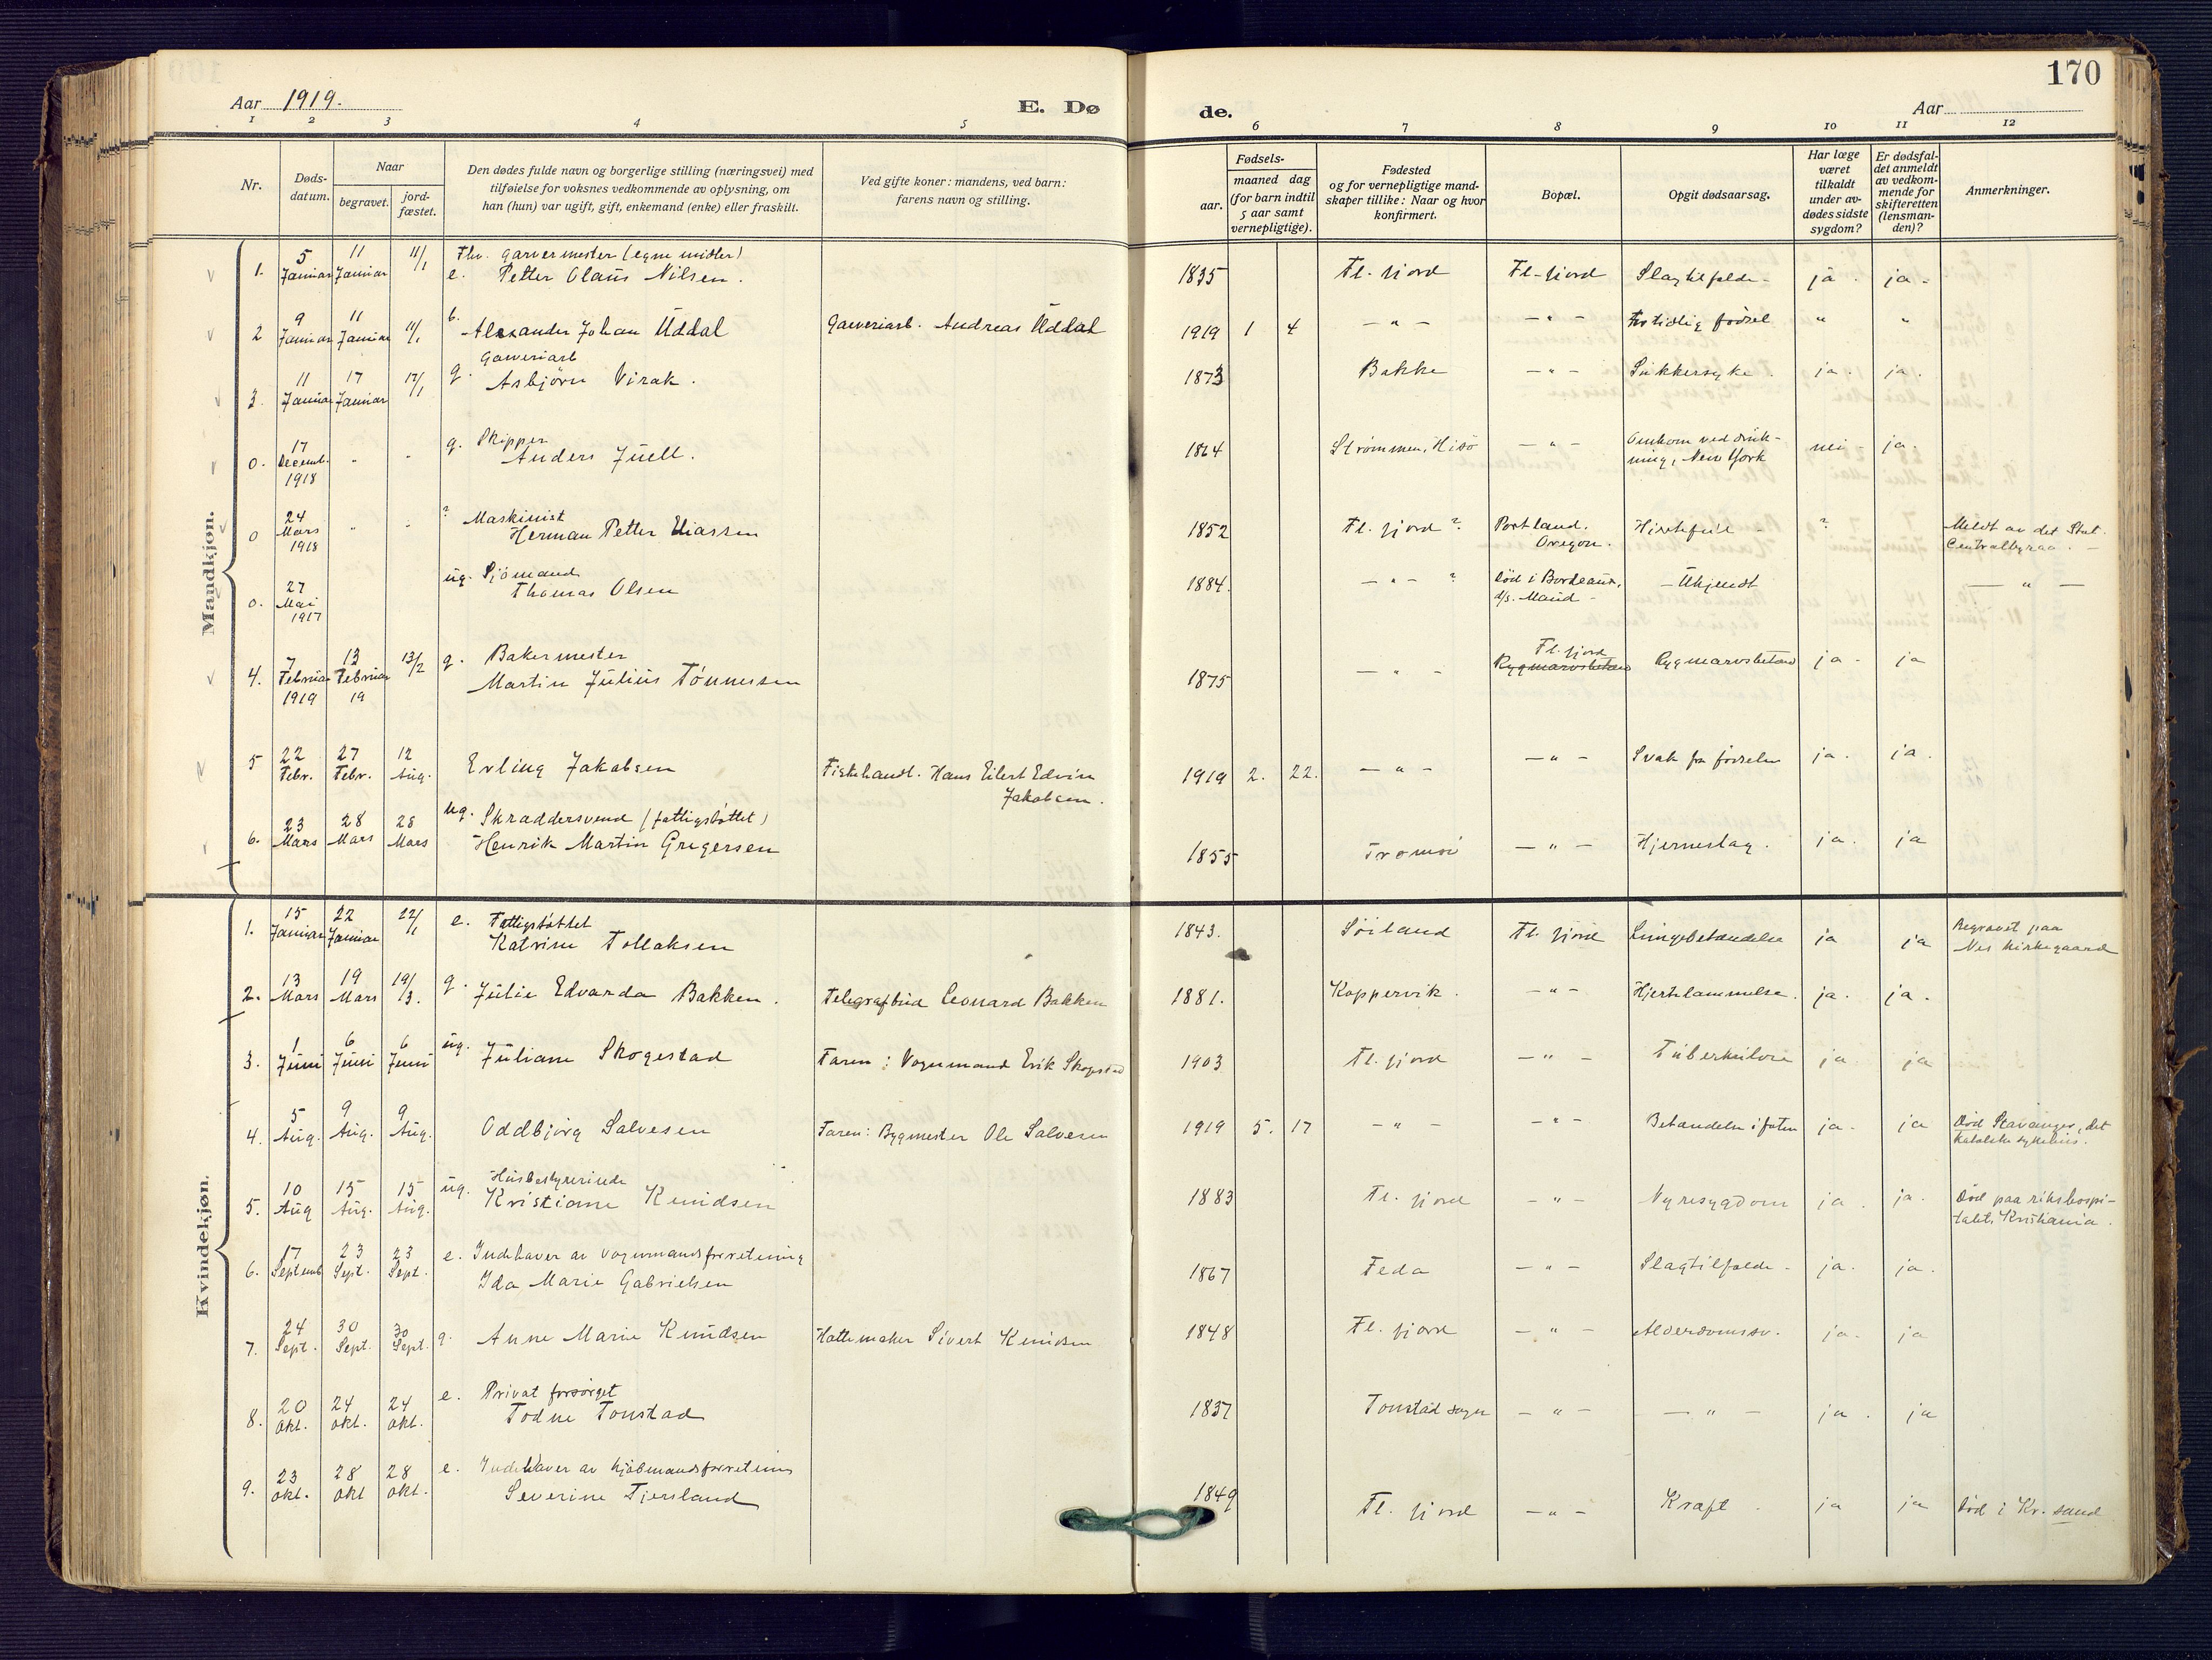 170
Aar 1919.
E. Dø
de.
Aar
1 2 3 4 5 6 7 8 9 10 11 12
Nr.
Døds-
datum.
Naar
begravet.
jord-
fæstet.
Den dødes fulde navn og borgerlige stilling (næringsvei) med
tilføielse for voksnes vedkommende av oplysning, om
han (hun) var ugift, gift, enkemand (enke) eller fraskilt.
Ved gifte koner: mandens, ved barn:
farens navn og stilling.
Fødsels-
aar.
maaned dag
(for barn indtil
5 aar samt
vernepligtige).
Fødested
og for vernepligtige mand-
skaper tillike: Naar og hvor
konfirmert.
Bopæl.
Opgit dødsaarsag.
Har læge
været
tilkaldt
under av-
dødes sidste
sygdom?
Er dødsfal-
det anmeldt
av vedkom-
mende for
skifteretten
(lensman-
den)?
Anmerkninger.
Mandkjøn.
1. 5 Januar 11 Januar 11/1 Fhv. garvermester (egne midler)
e. Petter Olaus Nilsen. 1835 Fl. fjord Fl-fjord Slagtilfælde- ja. ja.
2 9 Januar 11 Januar 11/1 b. Alexander Johan Uddal Garveriarb. Andreas Uddal 1919 1 4 - " - - " - For tidlig fødsel " "
3. 11 Januar 17 Januar 17/1 g. Garveriarb
Asbjörn Virak. 1873 Bakke - " - Sukkersyke. ja. ja.
0. 17 Decemb. 1918 " " g. Skipper
Anders Juell. 1864 Strømmen, Hisö - " - Omkom ved druk-
ning, New York nei - ja.
0 24 Mars 1918 " " ? Maskinist
Herman Petter Eliassen 1852 Fl. fjord ? Portland.
Oregon. Hjertefeil - ? Meldt av det Stat.
Centralbyraa. -
0. 27 Mai 1917 ug. Sjömand
Thomas Olsen 1884. - " - ? Död i Bordeaux,
d/s. Maud - - Ukjendt - " -
4. 7 Februar 1919 13 Februar 19 13/2 g. Bakermester
Martin Julius Tönnessen 1875 - " - Fl. fjord
Rygmarvsbetænd Rygmarvsbetænd ja. ja
5 22 Febr. 27 Febr. 12 Aug. Erling Jakobsen Fiskehandl. Hans Eilert Edvin
Jakobsen. 1919 2. 22. - " - - " - Svak fra fødselen ja. ja.
6. 23 Mars 28 Mars 28 Mars ug. Skræddersvend (fattigstöttet)
Henrik Martin Gregersen 1855 Tromöi - " - Hjerneslag. ja. ja
Kvindekjøn.
1. 15 Januar 22 Januar 22/1 e. Fattigstöttet
Katrine Tollaksen 1843. Söiland Fl. fjord Lungebetændelse ja ja Begravet paa
Nes kirkegaard
2. 13 Mars 19 Mars 19/3. g. Julie Edvarda Bakken. Telegrafbud Leonard Bakken 1881. Koppervik. - " - Hjertelammelse. ja. ja.
3. 1 Juni 6 Juni 6 Juni ug. Juliane Skogestad Faren: Vognmand Erik Skogestad 1903 Fl. fjord - " - Tuberkulose ja. ja
4. 5 Aug. 9 Aug. 9 Aug. Oddbjörg Salvesen Faren: Bygmester Ole Salvesen 1919 5. 17 - " - - " - Betændelse i foten ja. ja Död Stavanger, det
katolske sykehus.
5. 10 Aug 15 Aug. 15 Aug. ug. Husbestyrerinde
Kristiane Knudsen 1883 Fl. fjord - " - Nyresygdom ja. ja. Död paa rikshospi-
talet, Kristiania.
6. 17 Septemb 23 Sept. 23 Sept. e. Indehaver av vognmandsforretning
Ida Marie Gabrielsen 1867 Feda - " - Slagtilfælde. ja. ja.
7. 24 Sept. 30 Sept. 30 Sept. g. Anne Marie Knudsen Hattemaker Sivert Knudsen 1848 Fl. fjord - " - Alderdomssv. ja. ja
8. 20 Okt. 24 okt. 24 okt. e. Privat forsörget
Todne Tonstad 1837 Tonstad sogn - " - - " - ja. ja
9. 23 okt. 28 okt 28 okt. e. Indehaver av kjöbmandsforretning
Severine Tjersland 1849 Fl. fjord - " - Kræft. ja ja Död i Kr. sand